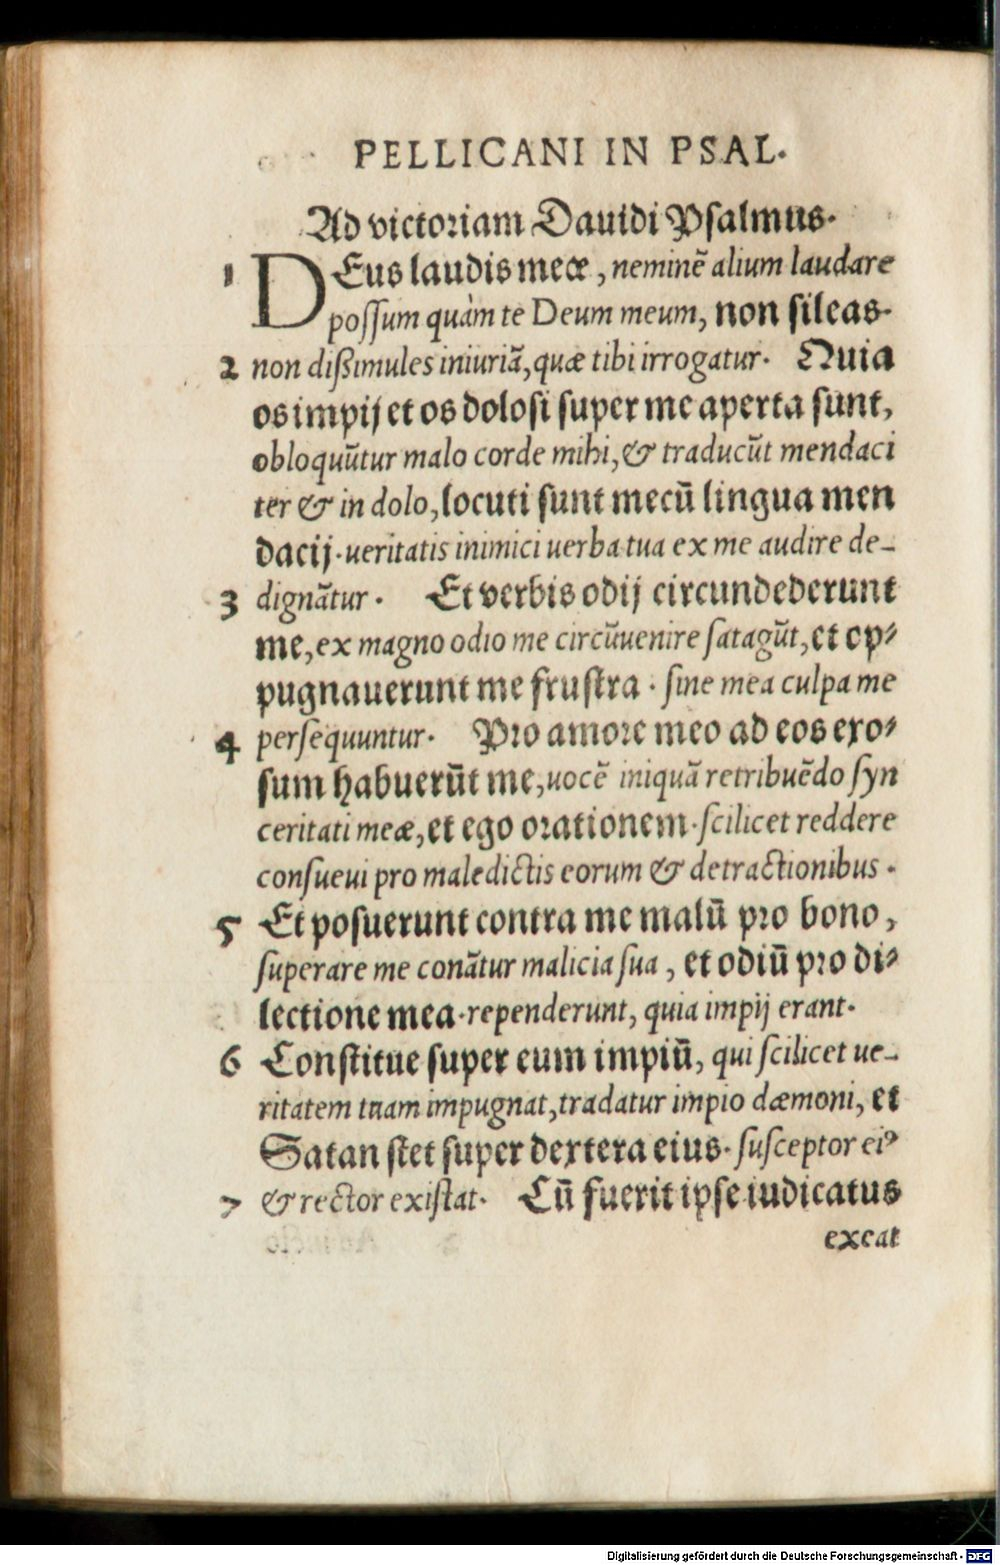 PELLICANI IN PSAL.
Ad victoriam Dauidi Psalmus.
1 DEus laudis meæ, neminē alium laudare
possum quàm te Deum meum, non sileas.
2 non dißimules iniuriā, quæ tibi irrogatur. Quia
os impij et os dolosi super me aperta sunt,
obloquūtur malo corde mihi, & traducūt mendaci
ter & in dolo, locuti sunt mecū lingua men
dacij. ueritatis inimici uerba tua ex me audire de-
3 dignātur. Et verbis odij circundederunt
me, ex magno odio me circūuenire satagūt, et op-
pugnauerunt me frustra. sine mea culpa me
4 persequuntur. Pro amore meo ad eos exo-
sum habuerūt me, uocē iniquā retribuēdo syn
ceritati meæ, et ego orationem. scilicet reddere
consueui pro maledictis eorum & detractionibus.
5 Et posuerunt contra me malū pro bono,
superare me conātur malicia sua, et odiū pro di-
lectione mea. rependerunt, quia impij erant.
6 Constitue super eum impiū, qui scilicet ue-
ritatem tuam impugnat, tradatur impio dæmoni, et
Satan stet super dextera eius. susceptor eiꝰ
7 & rector existat. Cū fuerit ipse iudicatus
exeat
Digitalisierung gefördert durch die Deutsche Forschungsgemeinschaft - DFG